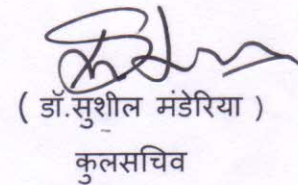 ( डॉ.सुशील मंडेरिया )
कुलसचिव